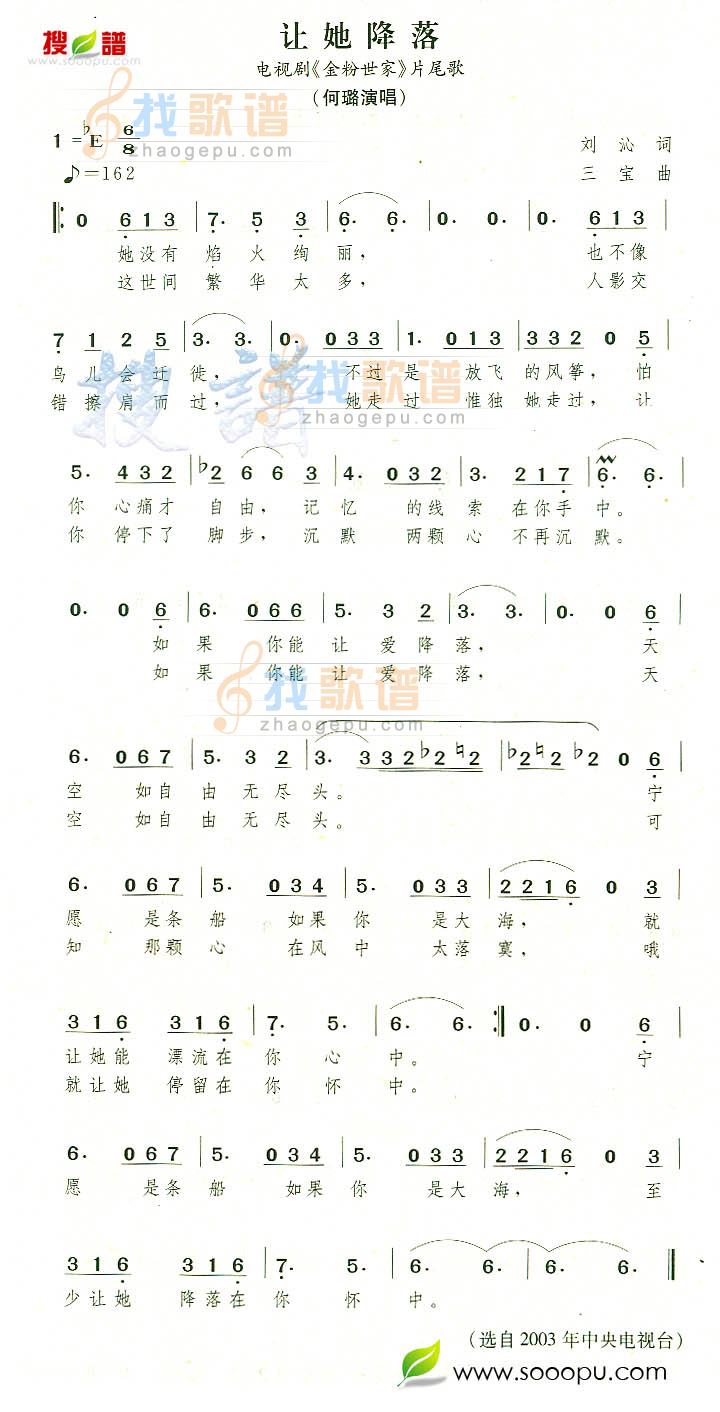 搜谱
www.sooopu.com
让她降落
电视剧《金粉世家》片尾歌
(何璐演唱)
找歌谱
zhaogepu.com
1=♭E 6/8
刘沁 词
♪=162
三宝 曲
‖: 0 6 1 3 | 7· 5 3 | 6· 6· | 0· 0· | 0· 6 1 3 |
她没有 焰火绚丽, 也不像
这世间 繁华太多, 人影交
7 1 2 5 | 3· 3· | 0· 0 3 3 | 1· 0 1 3 | 3 3 2 0 5 |
鸟儿会迁徙, 不过是 放飞的风筝, 怕
错擦肩而过, 她走过 惟独她走过, 让
搜谱
找歌谱
zhaogepu.com
5· 4 3 2 | ♭2 6 6 3 | 4· 0 3 2 | 3· 2 1 7 | 6· 6· |
你 心痛才 自由, 记忆 的线索 在你手中。
你 停下了 脚步, 沉默 两颗心 不再沉默。
0· 0 6 | 6· 0 6 6 | 5· 3 2 | 3· 3· | 0· 0 6 |
如果 你能让爱降落, 天
如果 你能让爱降落, 天
找歌谱
zhaogepu.com
6· 0 6 7 | 5· 3 2 | 3· 3 3 2 ♭2 ♮2 | ♭2 ♮2 ♭2 2 0 6 |
空 如自由无尽头。 宁
空 如自由无尽头。 可
6· 0 6 7 | 5· 0 3 4 | 5· 0 3 3 | 2 2 1 6 0 3 |
愿 是条船 如果你 是大海, 就
知 那颗心 在风中 太落寞, 哦
3 1 6 3 1 6 | 7· 5· | 6· 6· :‖ 0· 0 6 |
让她能 漂流在你心中。 宁
就让她 停留在你怀中。
6· 0 6 7 | 5· 0 3 4 | 5· 0 3 3 | 2 2 1 6 0 3 |
愿 是条船 如果你 是大海, 至
3 1 6 3 1 6 | 7· 5· | 6· 6· | 6· 6· ‖
少让她 降落在你怀中。
(选自2003年中央电视台)
www.sooopu.com